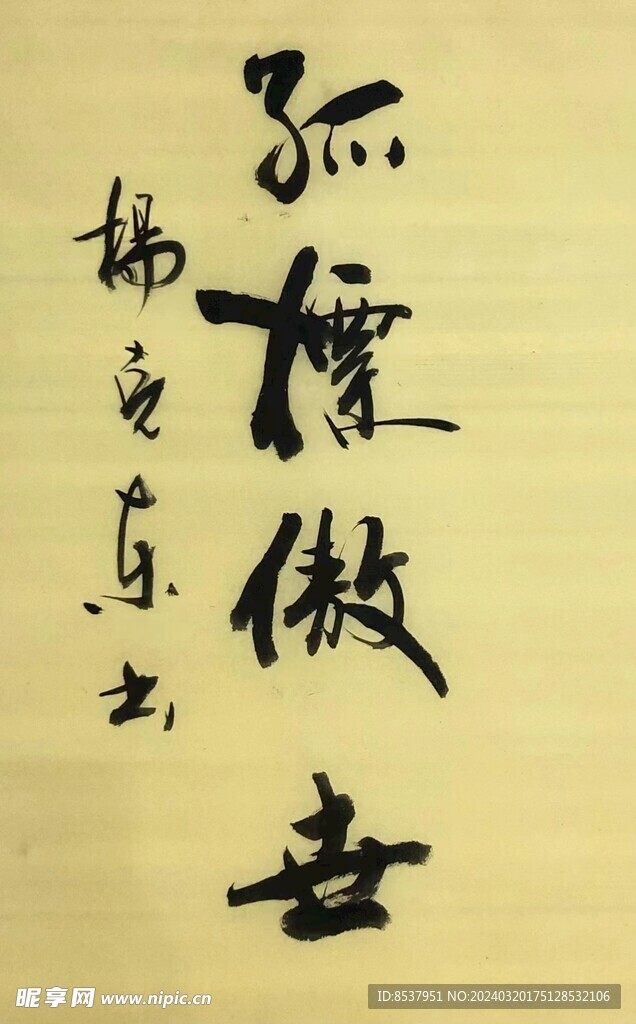 孤標傲世
楊克东书
昵享网 www.nipic.cn
ID:8537951 NO:20240320175128532106